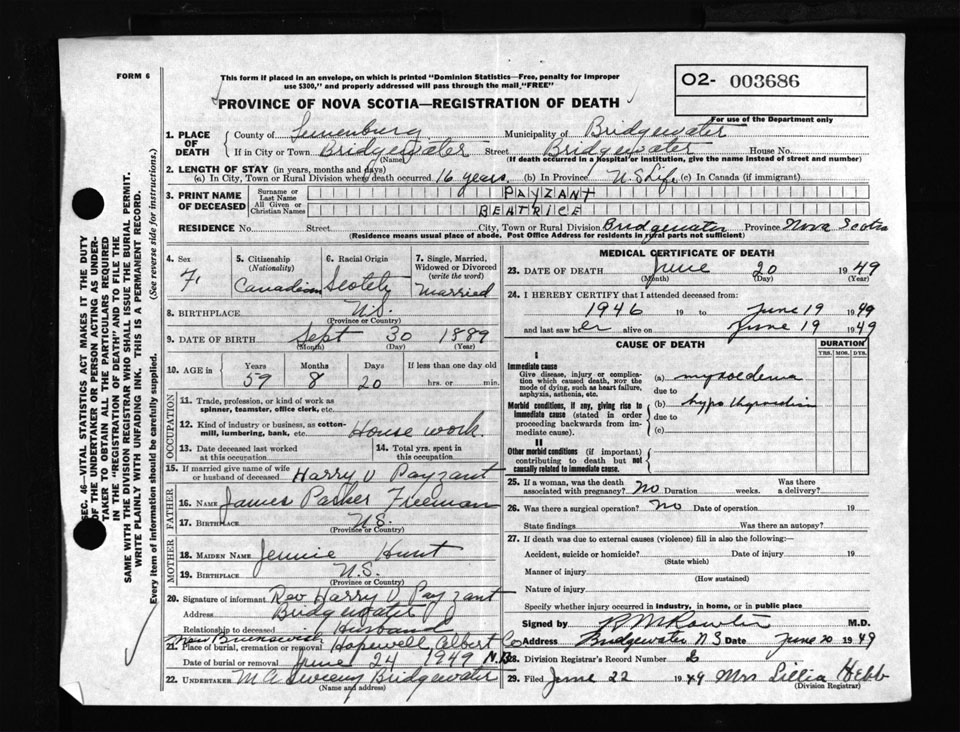 FORM 6
This form if placed in an envelope, on which is printed "Dominion Statistics—Free, penalty for improper
use $300," and properly addressed will pass through the mail "FREE"
O2- 003686
For use of the Department only
PROVINCE OF NOVA SCOTIA—REGISTRATION OF DEATH
1. PLACE OF DEATH County of Lunenburg Municipality of Bridgewater
If in City or Town Bridgewater Street Bridgewater House No.
(Name) (If death occurred in a hospital or institution, give the name instead of street and number)
2. LENGTH OF STAY (in years, months and days)
(a) In City, Town or Rural Division where death occurred 16 years (b) In Province N.S Life (c) In Canada (if immigrant)
3. PRINT NAME OF DECEASED Surname or Last Name PAYZANT
All Given or Christian Names BEATRICE
RESIDENCE No. Street City, Town or Rural Division Bridgewater Province Nova Scotia
(Residence means usual place of abode. Post Office Address for residents in rural parts not sufficient)
4. Sex F. 5. Citizenship (Nationality) Canadian 6. Racial Origin Scotch 7. Single, Married, Widowed or Divorced (write the word) Married
8. BIRTHPLACE N.S.
(Province or Country)
9. DATE OF BIRTH Sept 30 1889
(Month) (Day) (Year)
10. AGE in Years Months Days If less than one day old
59 8 20 hrs. or min.
OCCUPATION
11. Trade, profession, or kind of work as
spinner, teamster, office clerk, etc.
12. Kind of industry or business, as cotton-
mill, lumbering, bank, etc. House work.
13. Date deceased last worked at this occupation 14. Total yrs. spent in this occupation
15. If married give name of wife
or husband of deceased Harry V Payzant
FATHER
16. NAME James Parker Freeman
17. BIRTHPLACE N.S.
(Province or Country)
MOTHER
18. MAIDEN NAME Jennie Hunt
19. BIRTHPLACE N.S.
(Province or Country)
20. Signature of informant Rev Harry V Payzant
Address Bridgewater
Relationship to deceased Husband
New Brunswick
21. Place of burial, cremation or removal Hopewell Albert Co
Date of burial or removal June 24 1949 N.B.
22. UNDERTAKER M A Sweeny Bridgewater
(Name and address)
MEDICAL CERTIFICATE OF DEATH
23. DATE OF DEATH June 20 1949
(Month) (Day) (Year)
24. I HEREBY CERTIFY that I attended deceased from:
1946 19 to June 19 1949
and last saw her alive on June 19 1949
CAUSE OF DEATH DURATION
YRS. MOS. DYS.
I
Immediate cause
Give disease, injury or complica-
tion which caused death, NOT the
mode of dying, such as heart failure,
asphyxia, asthenia, etc.
(a) myxoedema
due to
Morbid conditions, if any, giving rise to
immediate cause (stated in order
proceeding backwards from im-
mediate cause).
(b) hypothyroidism
due to
(c)
II
Other morbid conditions (if important)
contributing to death but not
causally related to immediate cause.
25. If a woman, was the death
associated with pregnancy? No Duration weeks. Was there a delivery?
26. Was there a surgical operation? No Date of operation 19
State findings Was there an autopsy?
27. If death was due to external causes (violence) fill in also the following:—
Accident, suicide or homicide? Date of injury 19
(State which)
Manner of injury
(How sustained)
Nature of injury
Specify whether injury occurred in industry, in home, or in public place
Signed by M.D.
Address Bridgewater N S Date June 20 1949
28. Division Registrar's Record Number
29. Filed June 22 1949 Mrs Lillia Hebb
(Division Registrar)
SEC. 46—VITAL STATISTICS ACT MAKES IT THE DUTY
OF THE UNDERTAKER OR PERSON ACTING AS UNDER-
TAKER TO OBTAIN ALL THE PARTICULARS REQUIRED
IN THE "REGISTRATION OF DEATH" AND TO FILE THE
SAME WITH THE DIVISION REGISTRAR WHO SHALL ISSUE THE BURIAL PERMIT.
WRITE PLAINLY WITH UNFADING INK. THIS IS A PERMANENT RECORD.
Every item of information should be carefully supplied. (See reverse side for instructions.)